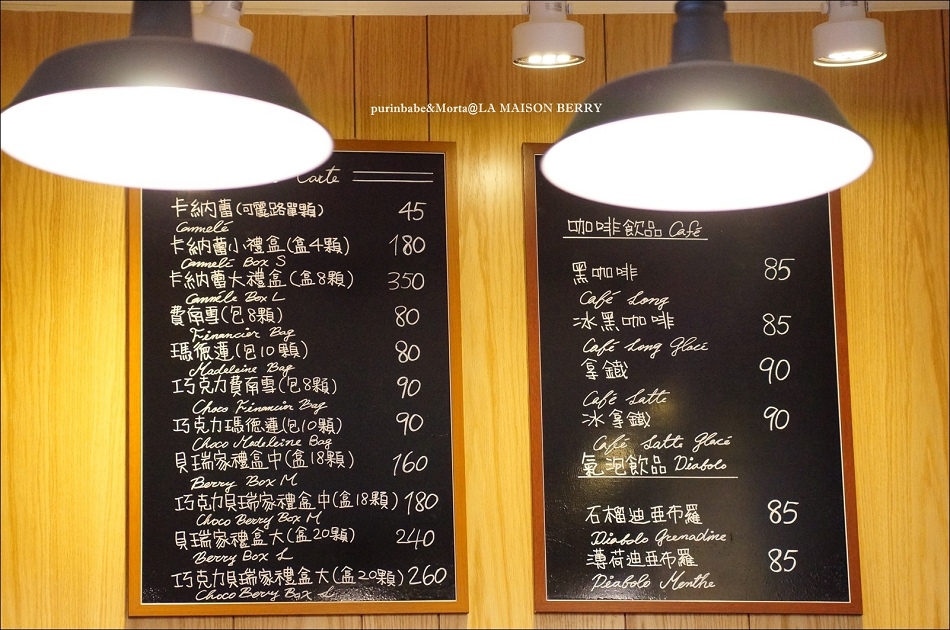 purinbabe&Morta@LA MAISON BERRY
Carte
卡納蕾(可麗路單顆) 45
Cannelé
卡納蕾小禮盒(盒4顆) 180
Cannelé Box S
卡納蕾大禮盒(盒8顆) 350
Cannéle Box L
費南雪(包8顆) 80
Financier Bag
瑪德蓮(包10顆) 80
Madeleine Bag
巧克力費南雪(包8顆) 90
Choco Financier Bag
巧克力瑪德蓮(包10顆) 90
Choco Madeleine Bag
貝瑞家禮盒中(盒18顆) 160
Berry Box M
巧克力貝瑞家禮盒中(盒18顆) 180
Choco Berry Box M
貝瑞家禮盒大(盒20顆) 240
Berry Box L
巧克力貝瑞家禮盒大(盒20顆) 260
Choco Berry Box L
咖啡飲品 Café
黑咖啡 85
Café Long
冰黑咖啡 85
Café Long Glacé
拿鐵 90
Café Latte
冰拿鐵 90
Café Latte Glacé
氣泡飲品 Diabolo
石榴迪亞布羅 85
Diabolo Grenadine
薄荷迪亞布羅 85
Diabolo Menthe